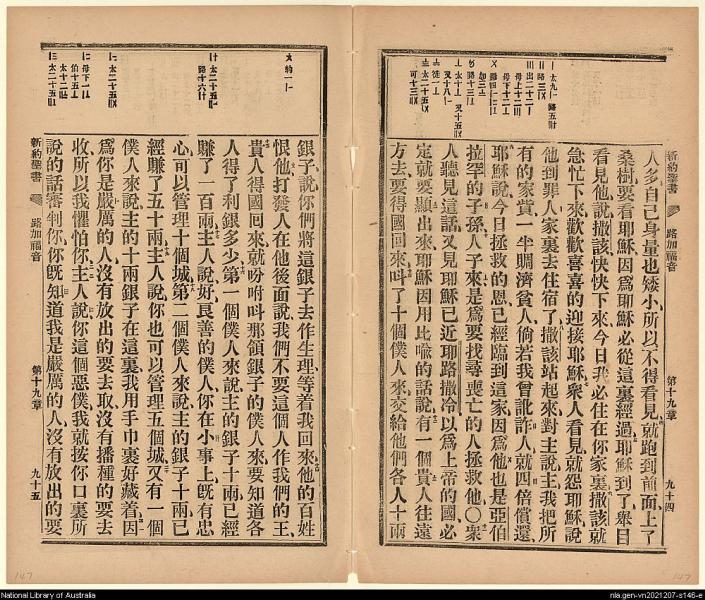 新約聖書 路加福音 第十九章 九十四
人多自己身量也矮小所以不得看見就跑到前面上了
桑樹要看耶穌因爲耶穌必從這裏經過耶穌到了舉目
看見他說撒該快快下來今日我必住在你家裏撒該就
急忙下來歡歡喜喜的迎接耶穌衆人看見就怨耶穌說
他到罪人家裏去住宿了撒該站起來對主說主我把所
有的家貲一半賙濟貧人倘若我曾訛詐人就四倍償還
耶穌說今日拯救的恩已經臨到這家因爲他也是亞伯
拉罕的子孫人子來是爲要找尋喪亡的人拯救他〇衆
人聽見這話又見耶穌已近耶路撒冷以爲上帝的國必
定就要顯出來耶穌因用比喩的話說有一個貴人往遠
方去要得國回來呌了十個僕人來交給他們各人十兩
銀子說你們將這銀子去作生理等着我回來他的百姓
恨他打發人在他後面說我們不要這個人作我們的王
貴人得國回來就吩咐呌那領銀子的僕人來要知道各
人得了利銀多少第一個僕人來說主的銀子十兩已經
賺了一百兩主人說好良善的僕人你在小事上旣有忠
心可以管理十個城第二個僕人來說主的銀子十兩已
經賺了五十兩主人說你也可以管理五個城又有一個
僕人來說主的十兩銀子在這裏我用手巾裹好藏着因
爲你是嚴厲的人沒有放出的要去取沒有播種的要去
收所以我懼怕你主人說你這個惡僕我就按你口裏所
說的話審判你你旣知道我是嚴厲的人沒有放出的要
新約聖書 路加福音 第十九章 九十五
147
147
National Library of Australia
nla.gen-vn2021207-s146-e